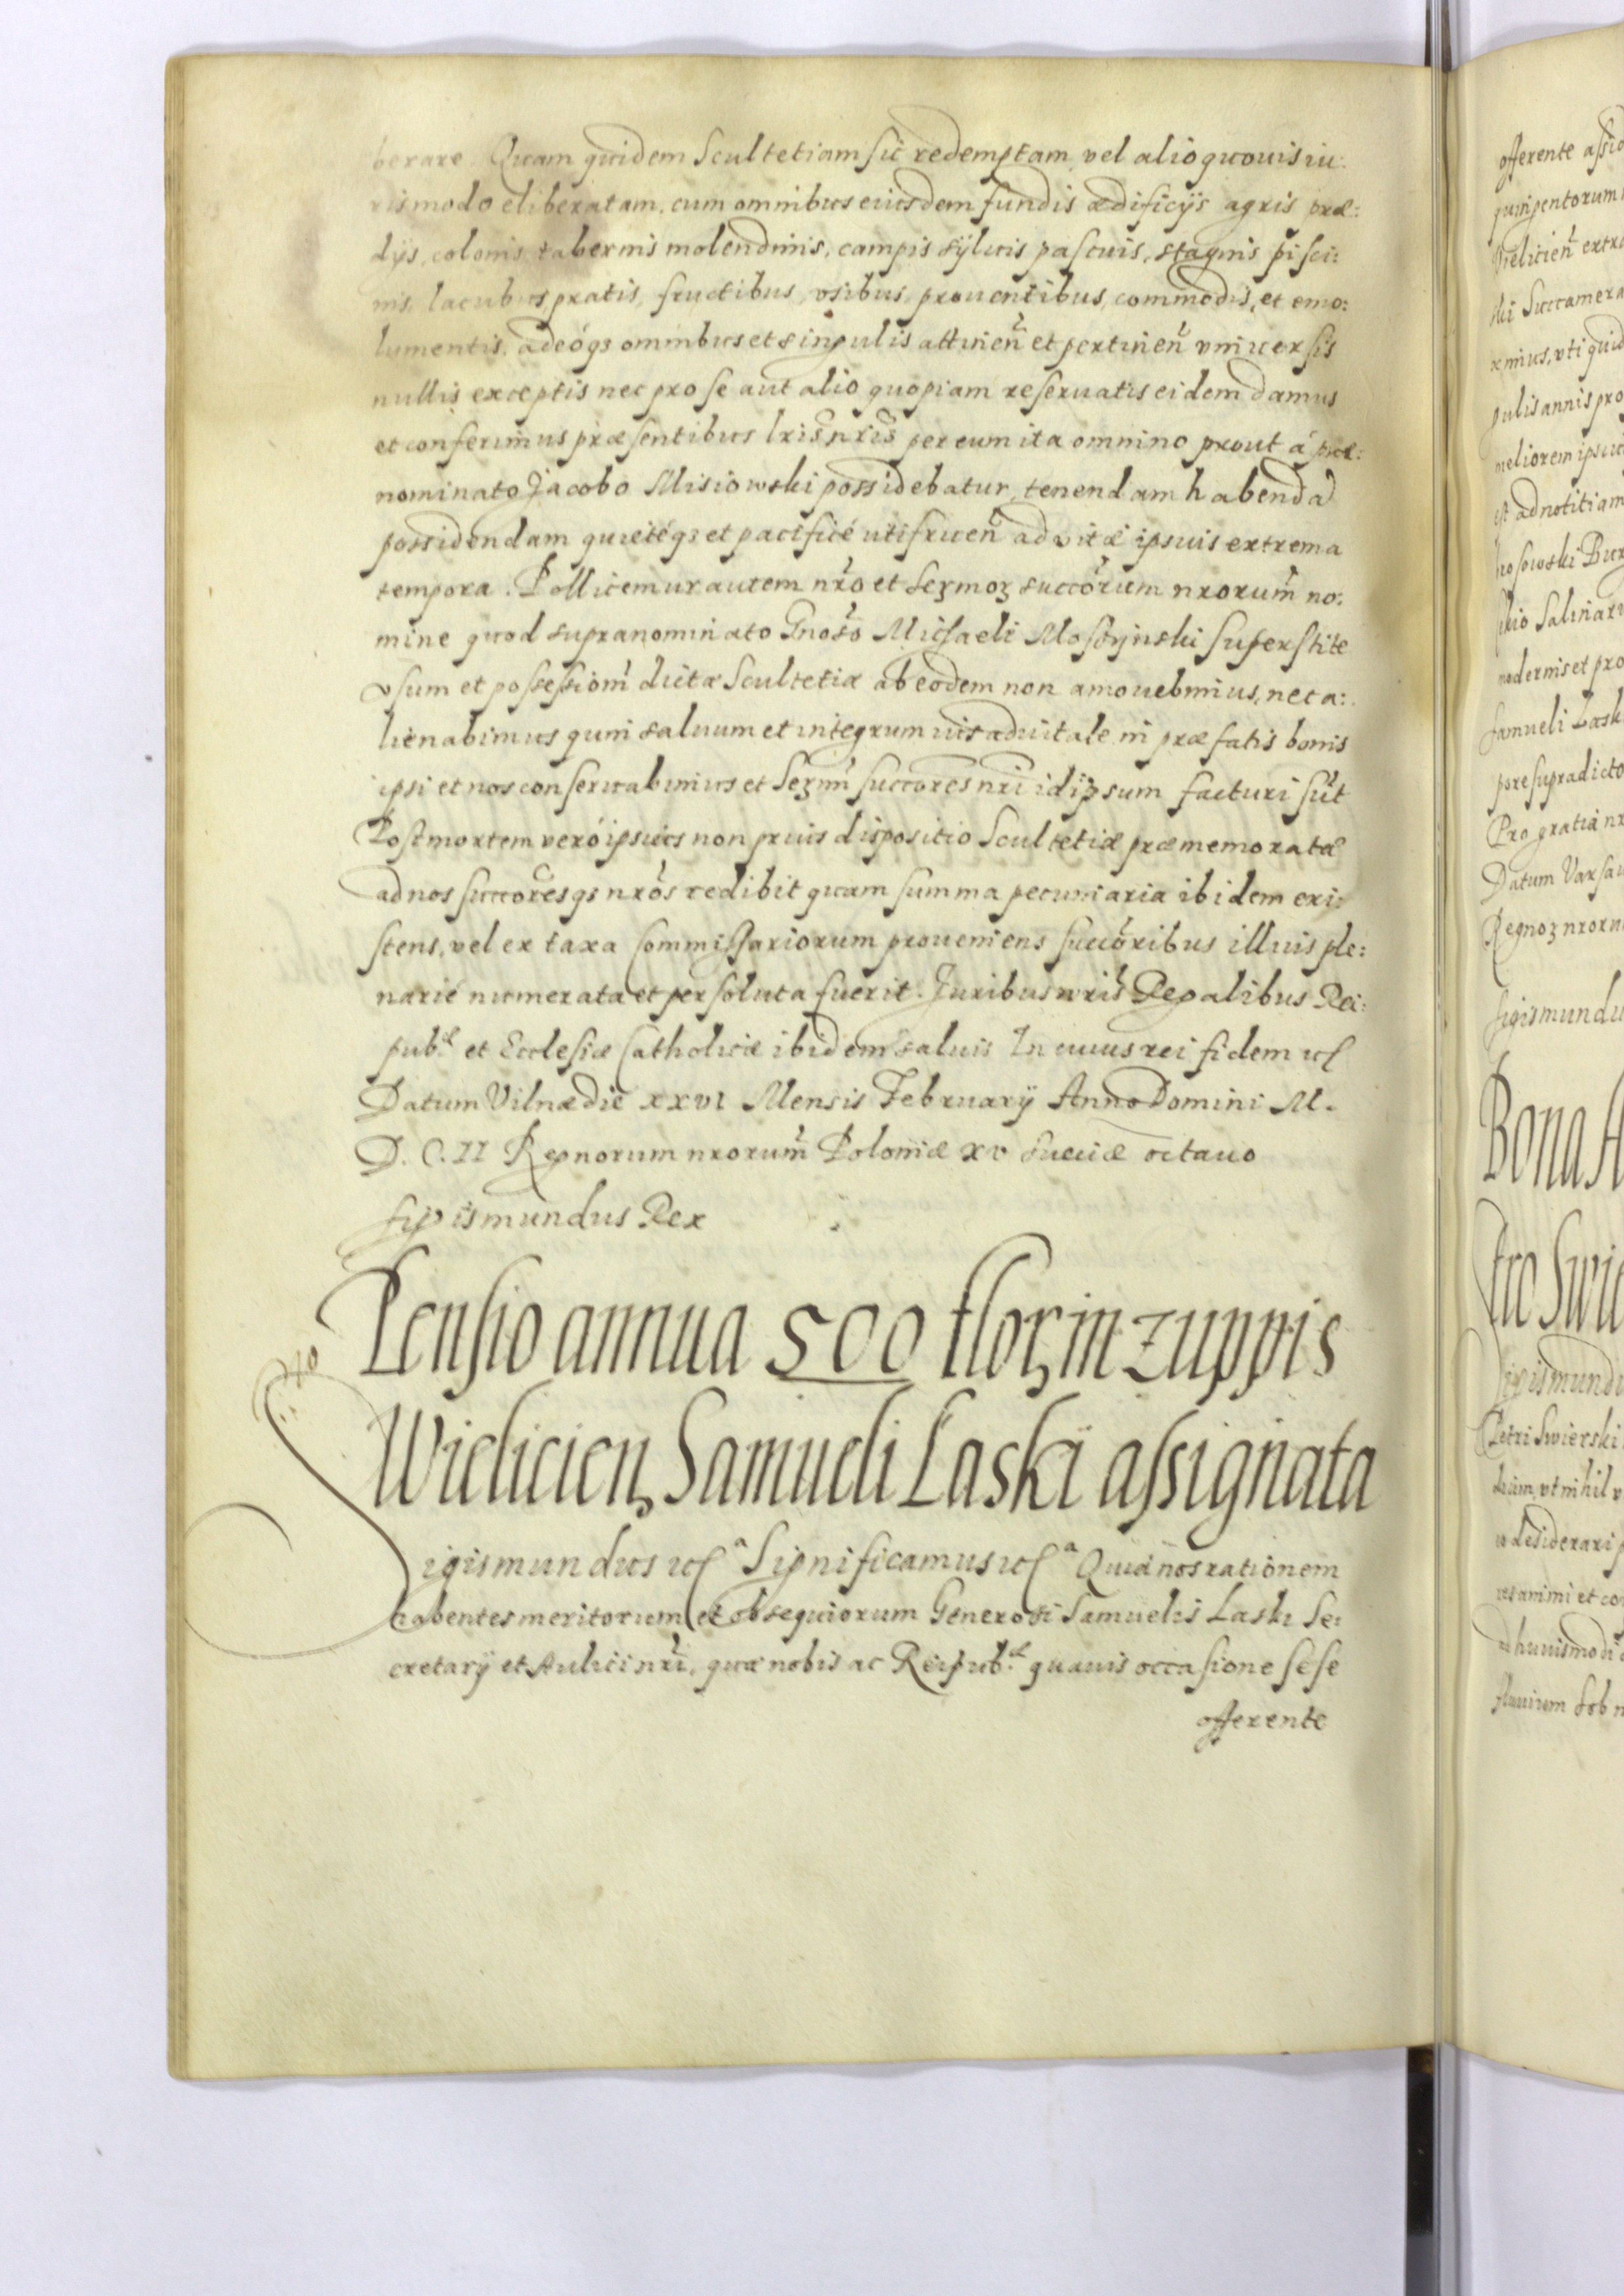 berare Quam quidem Scultetiam sic redemptam vel alio quouis iu:
ris modo eliberatam, cum omnibus eiusdem fundis ædificijs agris præ:
dijs, colonis, tabernis molendinis, campis sÿluis pascuis, stagnis pisci:
nis, lacubus pratis, fructibus, vsibus, prouentibus, commodis, et emo:
lumentis, adeóq3 omnibus et singulis attineñ et pertineñ vniuersis
nullis exceptis nec pro se aut alio quopiam reseruatis eidem damus
et conferimus præsentibus lris nris per eum ita omnino prout á præ:
nominato Jacobo Misiowski possidebatur, tenendam habendā
possidendam quietéq3 et pacificé utifrueñ ad vitæ ipsius extrema
tempora. Pollicemur autem nro et Sermor3 succorum nrorum no:
mine quod supranominato Gnoso Michaeli Moschÿnski superstite
vsum et possessiom dictæ Scultetiæ ab eodem non amouebimus, nec a:
lienabimus quin saluum et integrum ius aduitale in præfatis bonis
ipsi et nos conseruabimus et Sermi succores nri idipsum facturi sūt
Post mortem veró ipsius non prius dispositio Scultetiæ præmemoratæ
ad nos succoresq3 nros redibit quam summa pecuniaria ibidem exi:
stens, vel ex taxa Commissariorum proueniens succoribus illius ple:
narié numerata et persoluta fuerit. Juribus nris Regalibus Rei:
pub.æ et Ecclesiæ Catholicæ ibidem saluis In cuius rei fidem etc
Datum Vilnæ die xxvi Mensis Februarÿ Anno Domini M.
D. C. II Regnorum nrorum Poloniæ xv Sueciæ octauo
Sigismundus Rex
Pensio annua 500 flor3 in zuppis
Wielicien3 Samueli Laski assignata
Sigismundus etc.a Significamus etc.a Quia nos rationem
habentes meritorum et obsequiorum Generosi Samuelis Laski Se:
cretarÿ et Aulici nri, quæ nobis ac Reipub.æ quauis occasione sese
offerente
offerente
quingentorum
Wielicieñ extra
ski Succamera
meliorem ipsiu
est ad notitiam
Samueli Lask
pore supradicto
Pro gratia nr
Datum Varsa
Regnor3 nroru
Sigismundu
Bona
tro Swie
Sigismundu
Petri Swierski